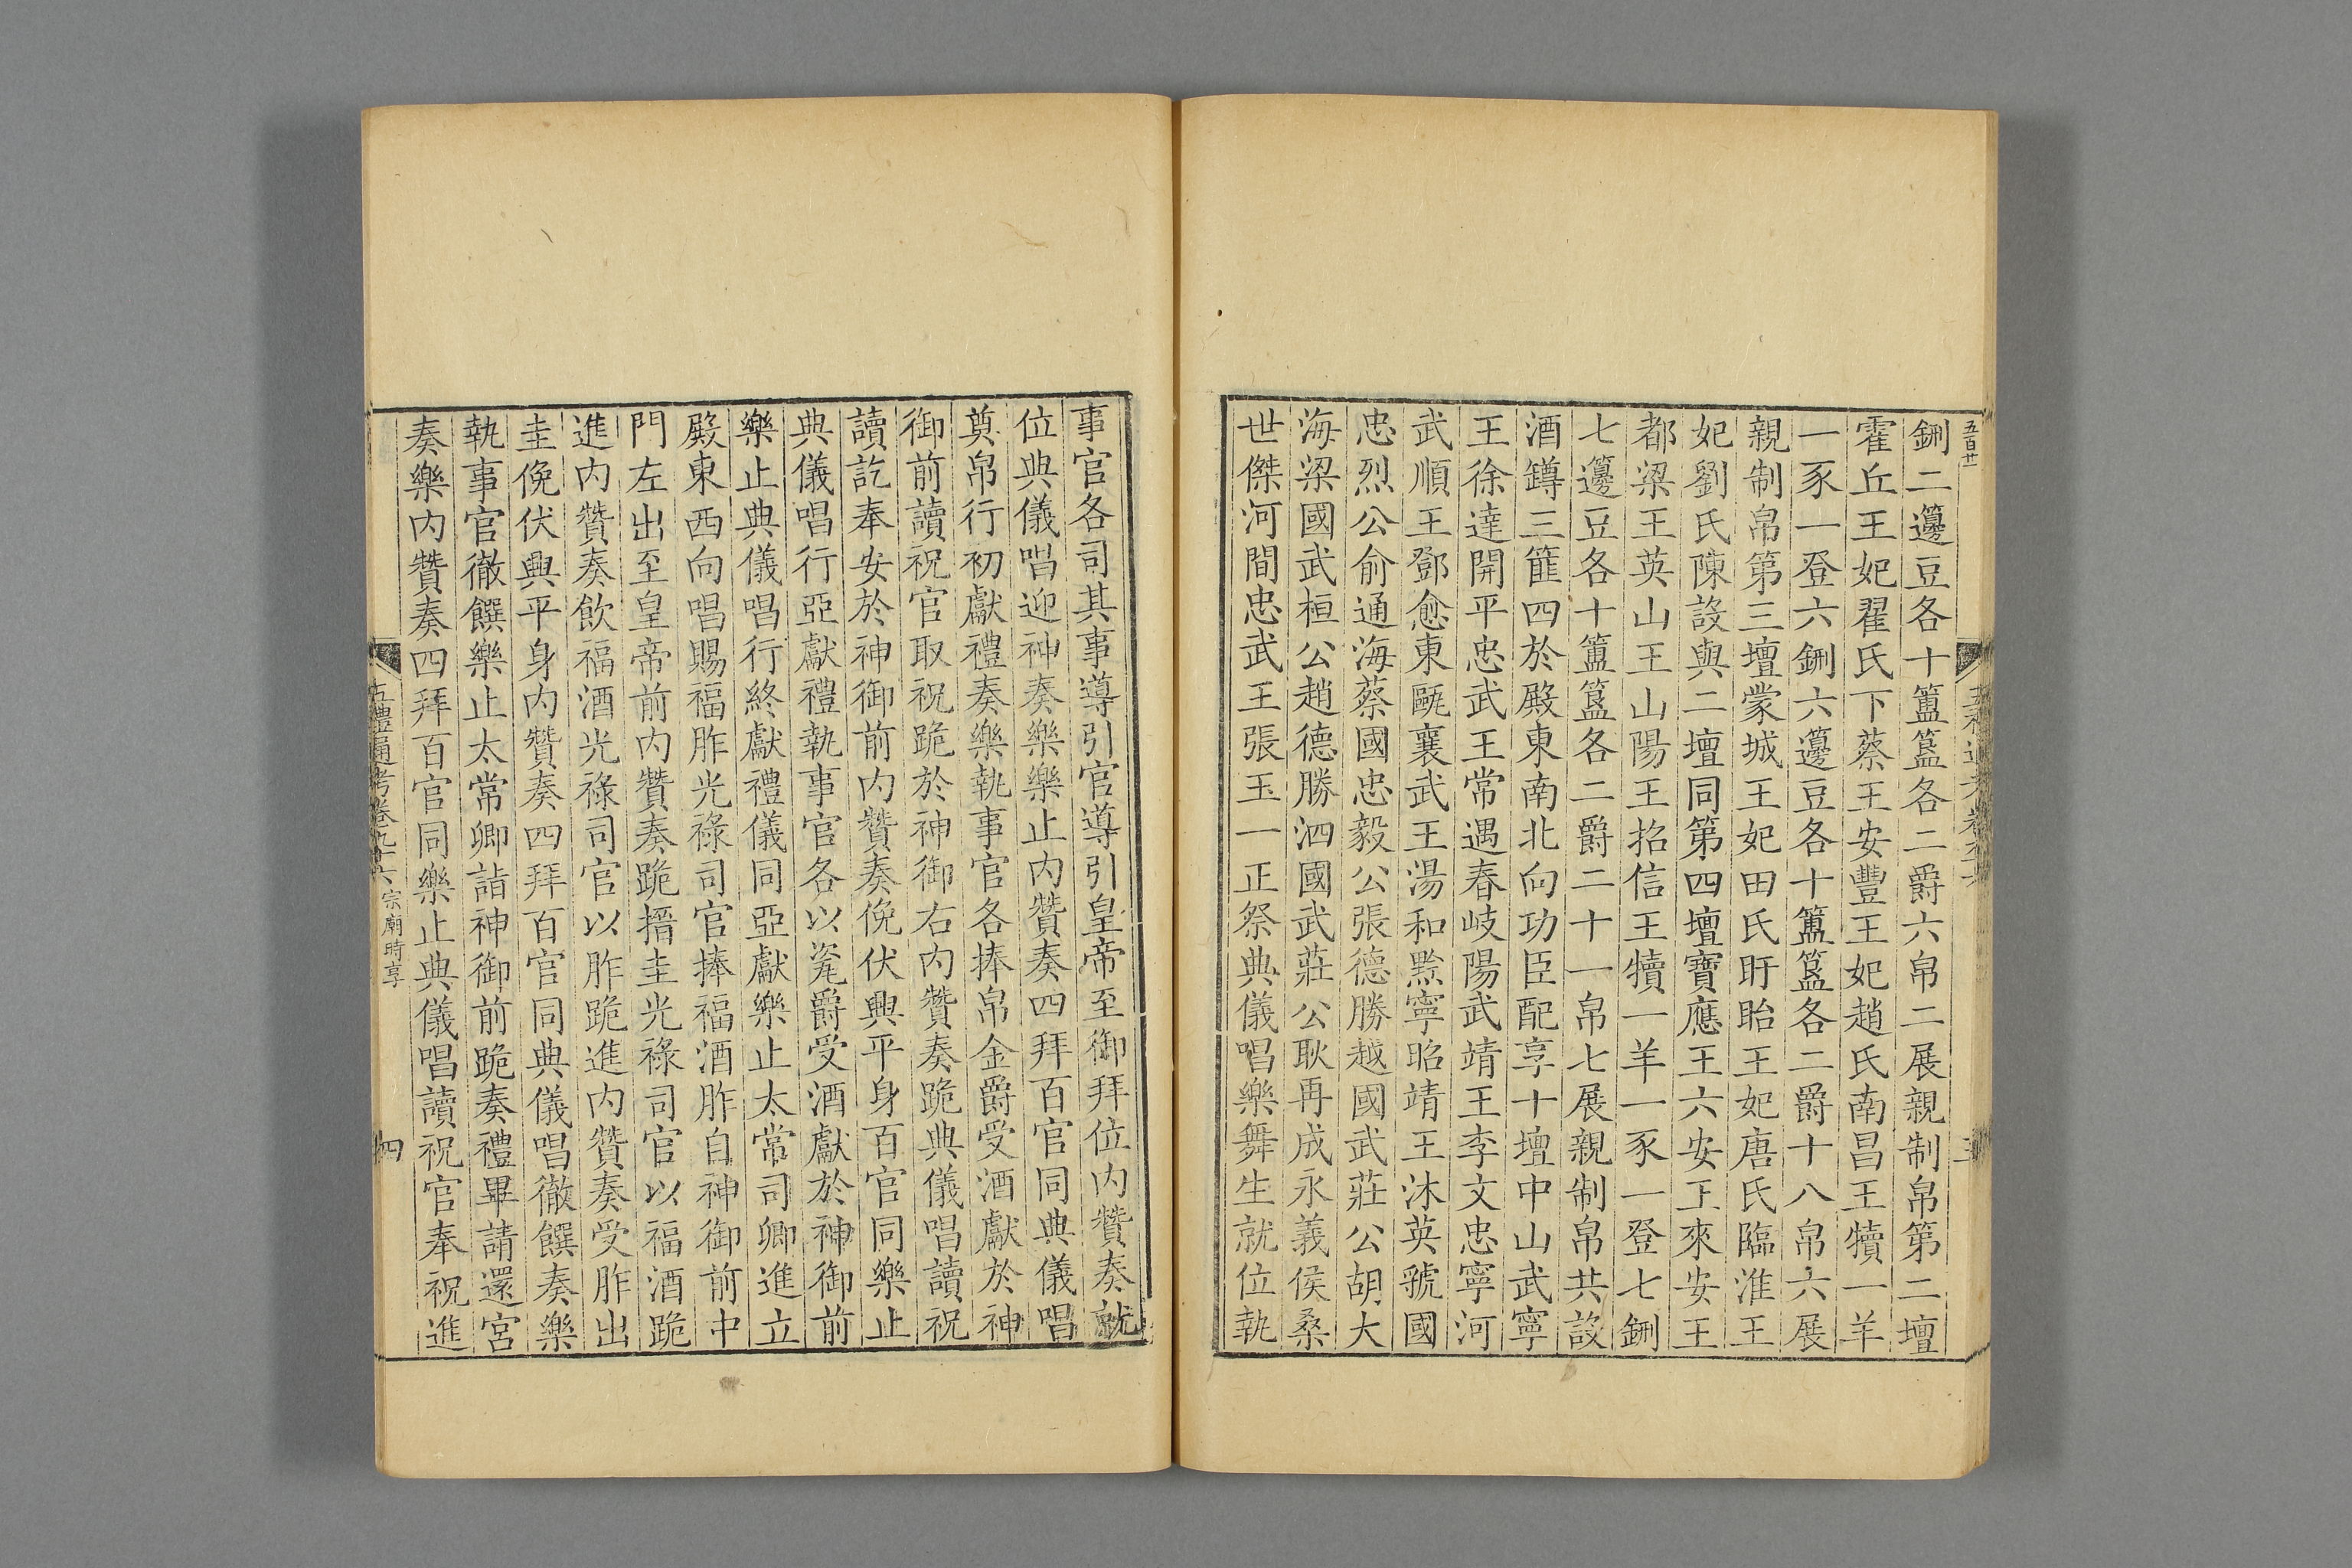 五百廿
鉶二籩豆各十簠簋各二爵六帛二展親制帛第二壇
霍丘王妃翟氏下蔡王安豐王妃趙氏南昌王犢一羊
一豕一登六鉶六籩豆各十簠簋各二爵十八帛六展
親制帛第三壇蒙城王妃田氏盱眙王妃唐氏臨淮王
妃劉氏陳設與二壇同第四壇寶應王六安王來安王
都梁王英山王山陽王招信王犢一羊一豕一登七鉶
七籩豆各十簠簋各二爵二十一帛七展親制帛共設
酒鐏三篚四於殿東南北向功臣配享十壇中山武寧
王徐達開平忠武王常遇春岐陽武靖王李文忠寧河
武順王鄧愈東甌襄武王湯和黔寧昭靖王沐英虢國
忠烈公俞通海蔡國忠毅公張德勝越國武莊公胡大
海梁國武桓公趙德勝泗國武莊公耿再成永義侯桑
世傑河間忠武王張玉一正祭典儀唱樂舞生就位執
事官各司其事導引官導引皇帝至御拜位內贊奏就
位典儀唱迎神奏樂樂止內贊奏四拜百官同典儀唱
奠帛行初獻禮奏樂執事官各捧帛金爵受酒獻於神
御前讀祝官取祝跪於神御右內贊奏跪典儀唱讀祝
讀訖奉安於神御前內贊奏俛伏興平身百官同樂止
典儀唱行亞獻禮執事官各以瓷爵受酒獻於神御前
樂止典儀唱行終獻禮儀同亞獻樂止太常司卿進立
殿東西向唱賜福胙光祿司官捧福酒胙自神御前中
門左出至皇帝前內贊奏跪搢圭光祿司官以福酒跪
進內贊奏飲福酒光祿司官以胙跪進內贊奏受胙出
圭俛伏興平身內贊奏四拜百官同典儀唱徹饌奏樂
執事官徹饌樂止太常卿詣神御前跪奏禮畢請還宮
奏樂內贊奏四拜百官同樂止典儀唱讀祝官奉祝進
五禮通考卷九十六 宗廟時享 四